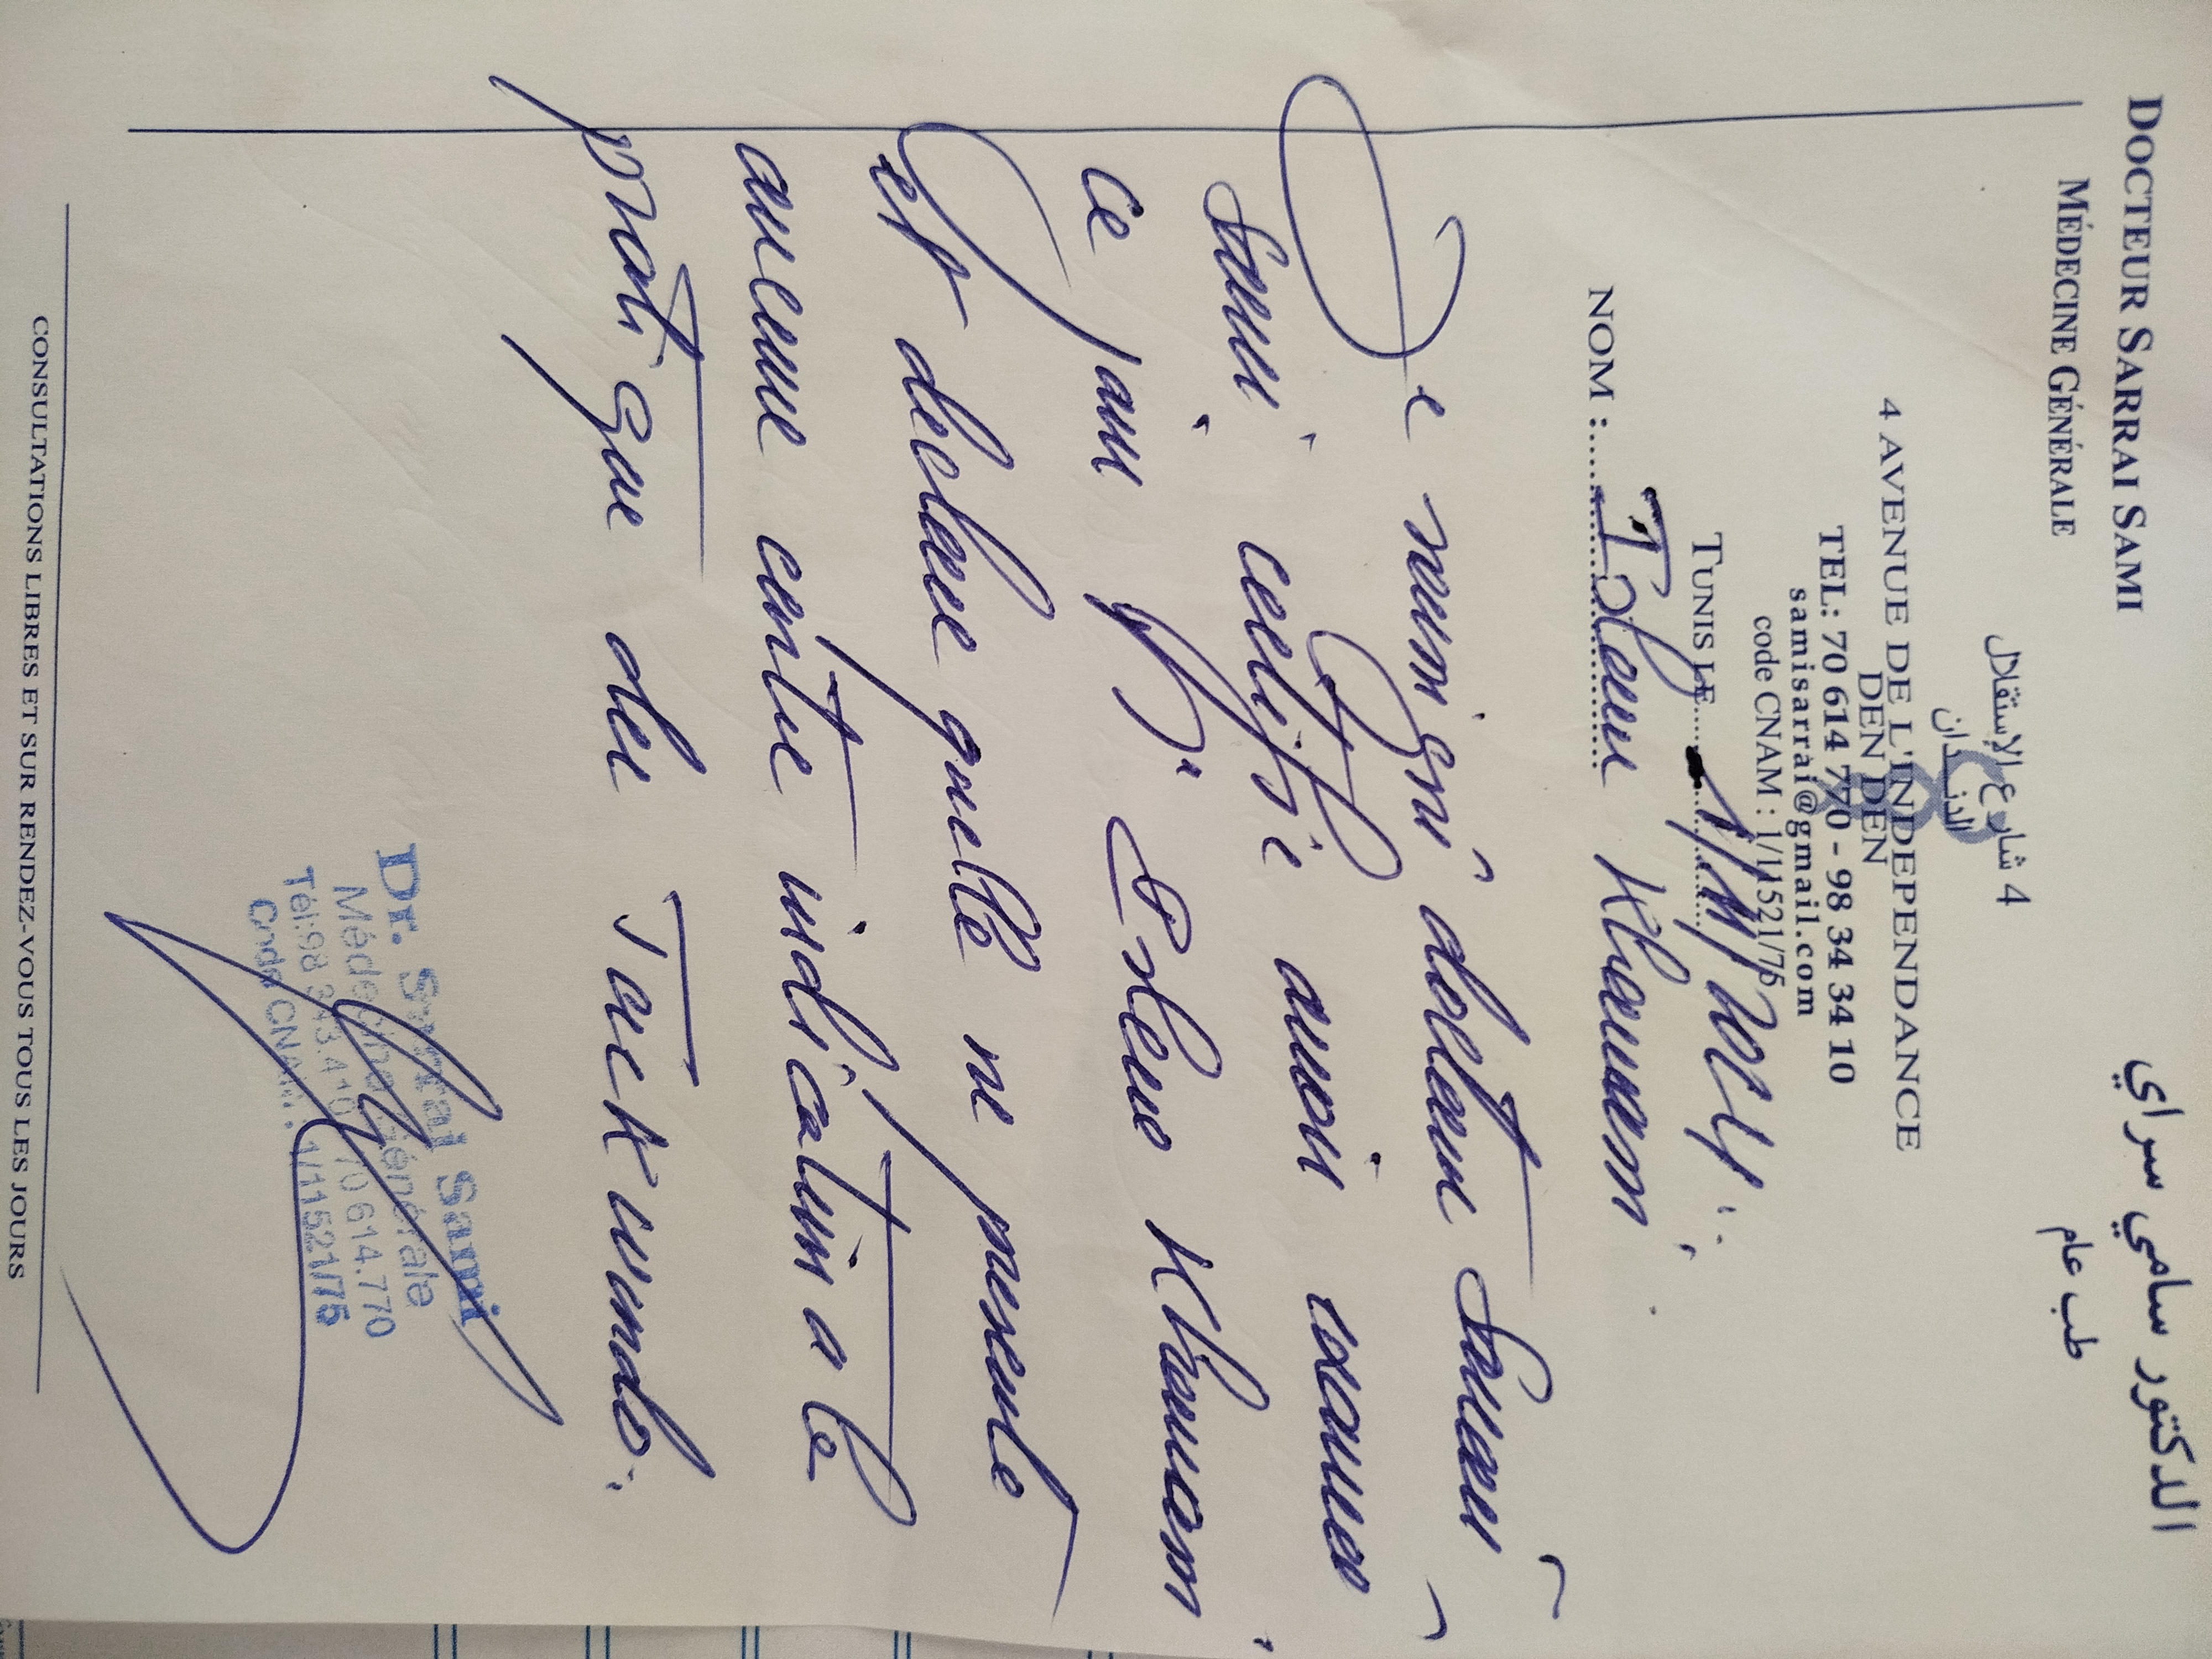 DOCTEUR SARRAI SAMI
MÉDECINE GÉNÉRALE
الدكتور سامي سراي
طب عام
4 شارع الإستقلال
الدندان
4 AVENUE DE L'INDEPENDANCE
DEN DEN
TEL: 70 614 770 - 98 34 34 10
samisarrai@gmail.com
code CNAM : 1/11521/75
TUNIS LE
NOM : Islem
Je soussigné docteur Sarrai
Sami certifie avoir examiné
ce jour
et declare quelle ne presente
aucune contre indication a la
pratique du Taekwondo.
Dr. Sarrai Sami
Médecine Générale
Tél:98 343.410 70 614.770
Code CNAM: 1/11521/75
CONSULTATIONS LIBRES ET SUR RENDEZ-VOUS TOUS LES JOURS